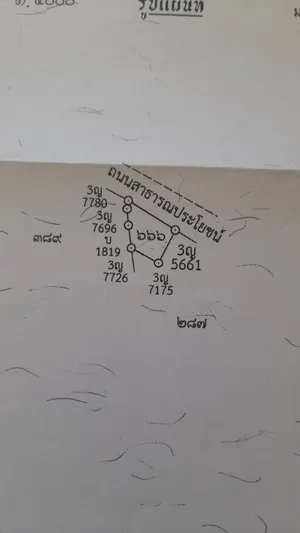 รูปแผนที่
ถนนสาธารณประโยชน์
3ญ
7780
3ญ
7696
บ
1819
3ญ
7726
๖๖๖
3ญ
5661
3ญ
7175
๓๘๙
๒๘๗